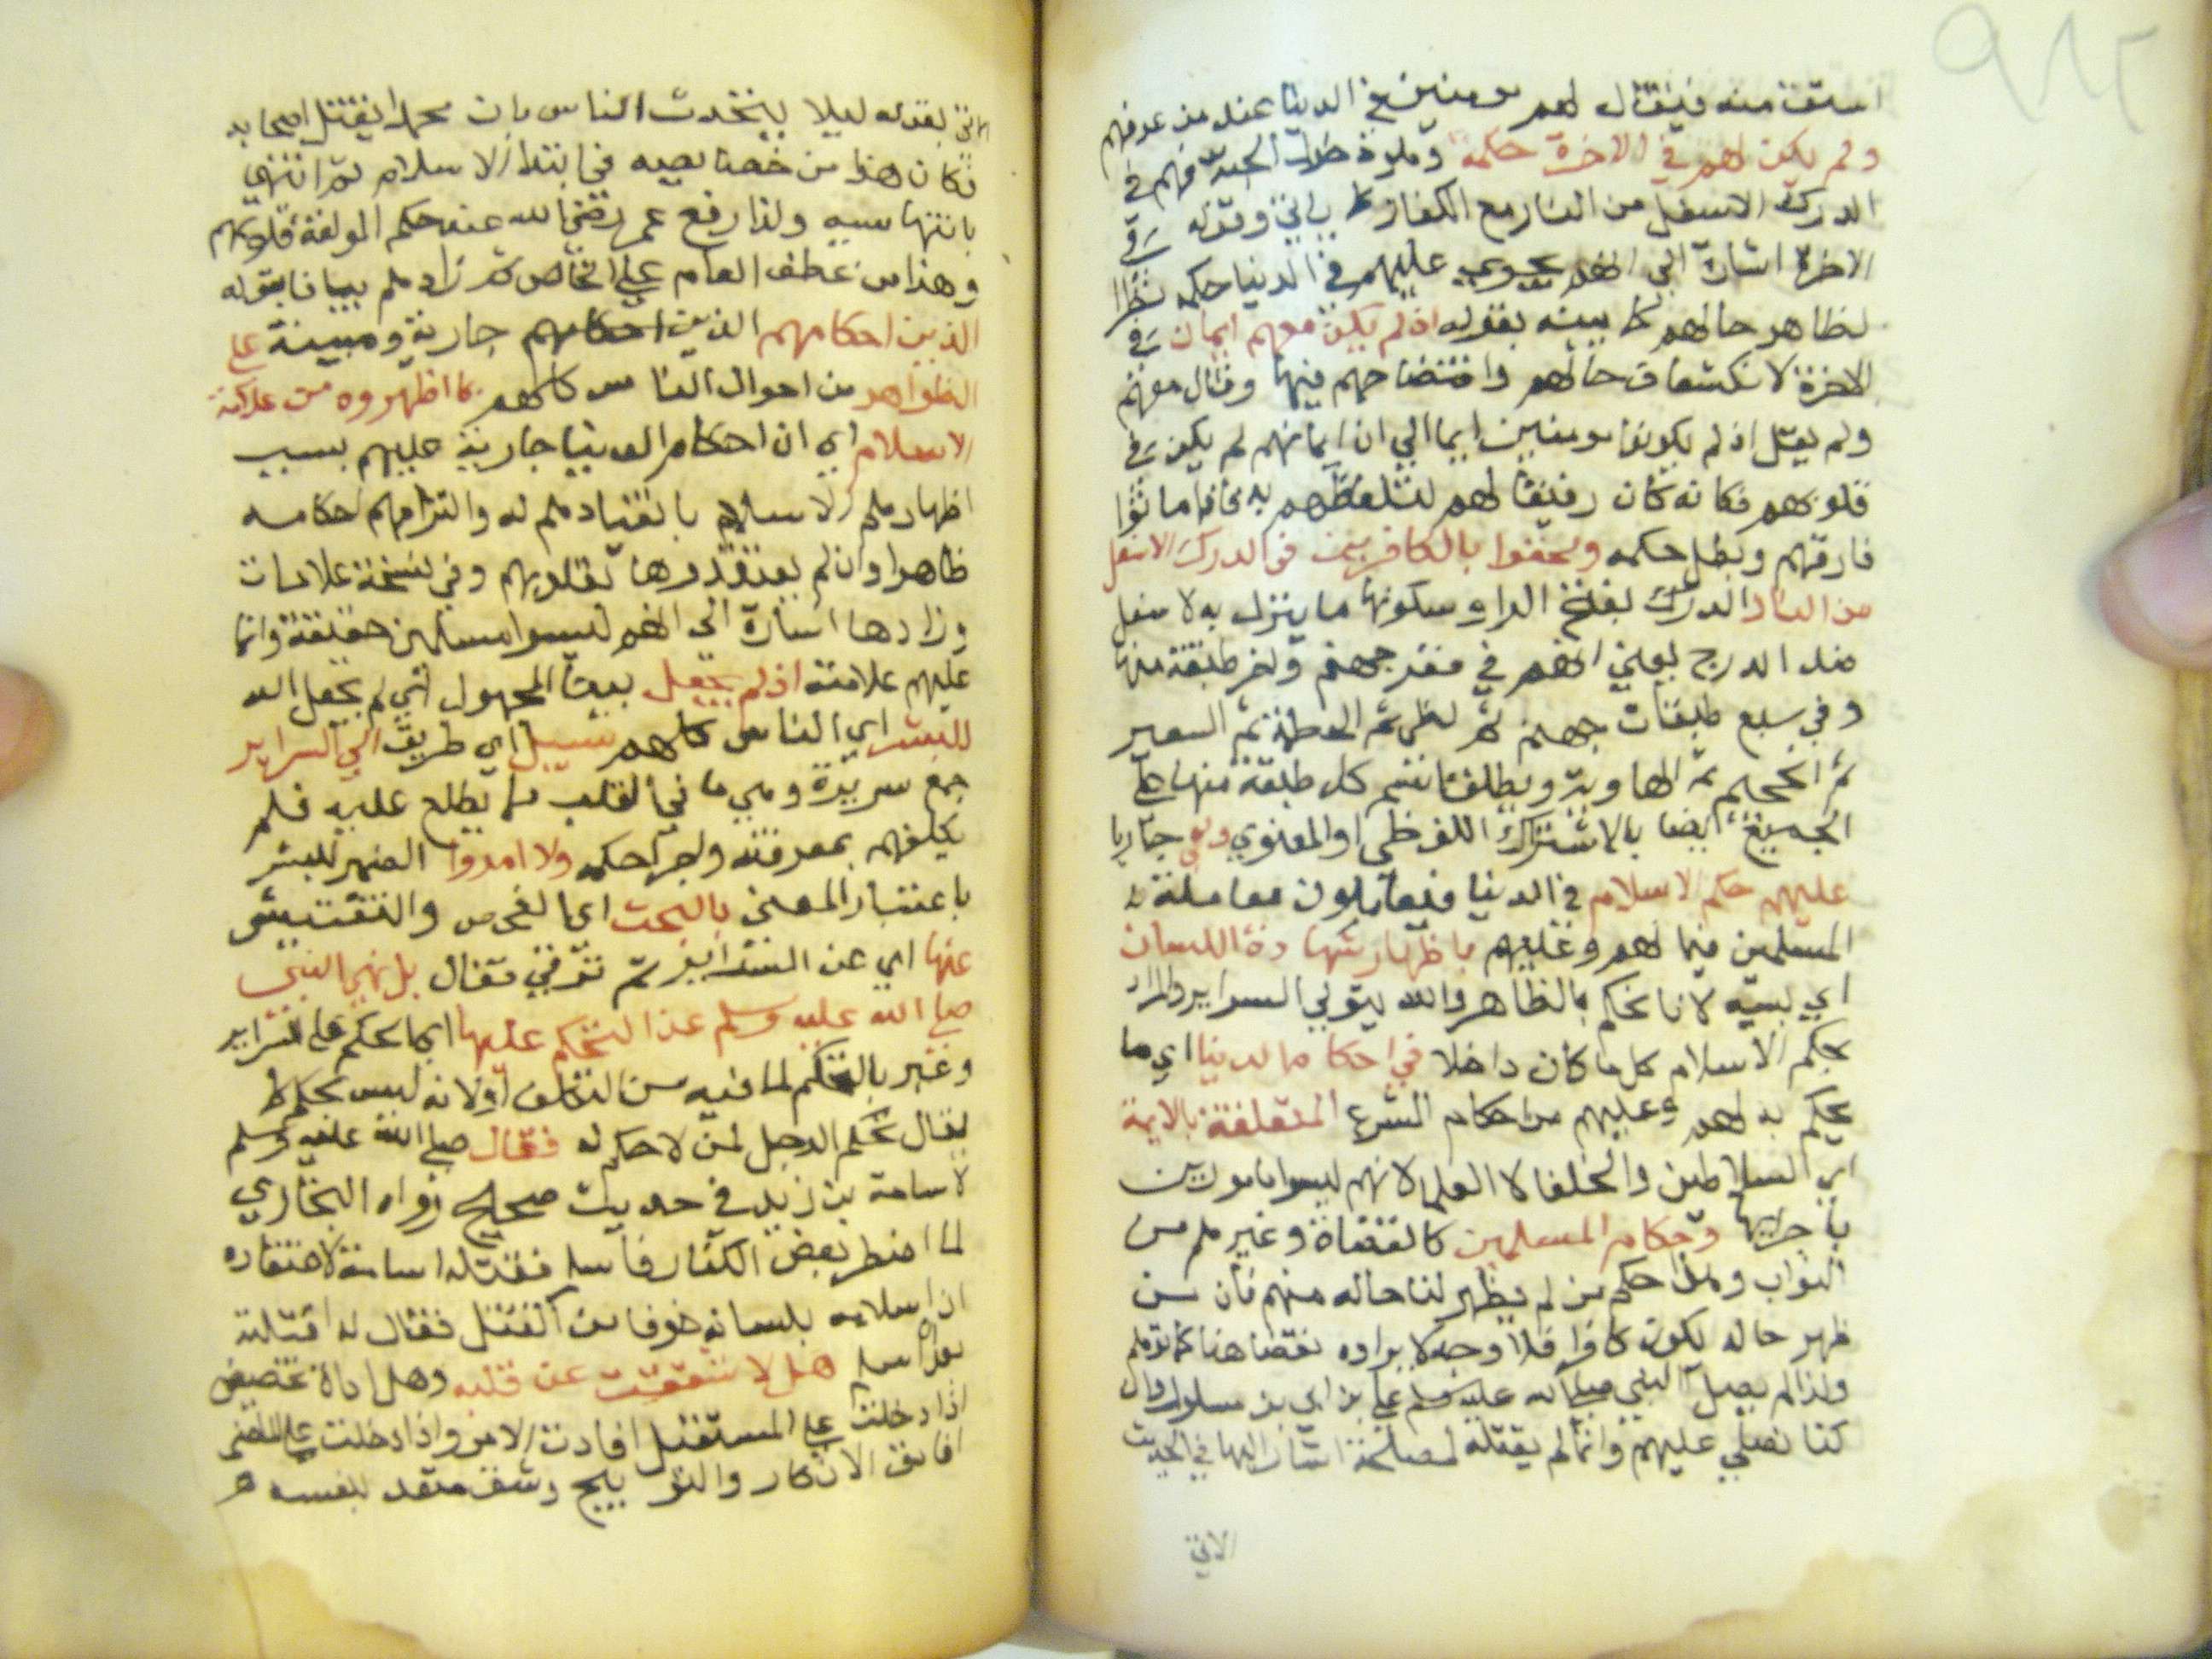 ٩٨٢
اسقت منه فيقال لهم مومنين في الدنيا عند من عرفهم
ولم يكن لهم في الاخرة حكمه وهو دخول الجنة فهم في
الدرك الاسفل من النار مع الكفار كما ياتي وقوله في
الاخرة اشارة الى انهم يجري عليهم في الدنيا حكمه نظرا
لظاهر حالهم كما بينه بقوله اذ لم يكن معهم ايمان في
الاخرة لانكشاف حالهم وافتضاحهم فيها وقال معهم
ولم يقل اذ لم يكونوا مومنين ايما الي ان ايمانهم لم يكن في
قلوبهم فكانه كان رفيقا لهم لتلفظهم به فاذا ماتوا
فارقهم وبطل حكمه ولحقوا بالكافرين في الدرك الاسفل
من النار الدرك بفتح الراء وسكونها ما ينزل به لاسفل
ضد الدرج يعني انهم في مقر جهنم واخر طبقة منها
وفي سبع طبقات جهنم ثم لظى ثم الحطمة ثم السعير
ثم الجحيم ثم الهاوية ويطلق اسم كل طبقة منها على
الجميع ايضا بالاشتراك اللفظي او المعنوي وبقي جاريا
عليهم حكم الاسلام في الدنيا فيعاملون معاملة
المسلمين فيما لهم وعليهم باظهار شهادة اللسان
اي بسببه لانا نحكم بالظاهر والله يتولى السراير والمراد
بحكم الاسلام كل ما كان داخلا في احكام الدنيا اي ما
يحكم به لهم وعليهم من احكام الشرع المتعلقة بالايمة
اي السلاطين والخلفا لا العلما لانهم ليسوا مامورين
باجرايها وحكام المسلمين كالقضاة وغيرهم من
النواب وهذا حكم من لم يظهر لنا حاله منهم فان من
ظهر حاله يكون كافرا فلا وجه لايراده نقضا هنا كما توهم
ولذا لم يصل النبي صلى الله عليه وسلم على بن ابي بن سلول وان
كنا نصلي عليهم وانما لم يقتله لمصلحة اشار اليها في الحديث
الاتي
الاتي بقوله ليلا يتحدث الناس بان محمدا يقتل اصحابه
فكان هذا من خصايصه في ابتدا الاسلام ثم انتهى
بانتها سببه ولذا رفع عمر رضي الله عنه حكم المولفة قلوبهم
وهذا من عطف العام على الخاص ثم زادهم بيانا بقوله
الذين احكامهم الذين احكامهم جارية ومبينة على
الظواهر من احوال الناس كلهم بما اظهروه من علامة
الاسلام اي ان احكام الدنيا جارية عليهم بسبب
اظهارهم الاسلام بانقيادهم له والتزامهم احكامه
ظاهرا وان لم يعتقدوها بقلوبهم وفي نسخة علامات
وزادها اشارة الى انهم ليسوا مسلمين حقيقة وانما
عليهم علامته اذ لم يجعل ببنا المجهول اي لم يجعل الله
للبشر اي الناس كلهم سبيل اي طريق الى السراير
جمع سريرة وهي ما في القلب مما لم يطلع عليه فلم
يكلفهم بمعرفته واجرا حكمه ولا امروا الضمير للبشر
باعتبار المعنى بالبحث اي الفحص والتفتيش
عنها اي عن السراير ثم ترقى فقال بل نهى النبي
صلى الله عليه وسلم عن التحكم عليها اي الحكم على السراير
وعبر بالتحكم لما فيه من التكلف او لانه ليس بحكم كما
يقال تحكم الرجل لمن لا حكم له فقال صلى الله عليه وسلم
لاسامة بن زيد في حديث صحيح رواه البخاري
لما اضطر بعض الكفار فاسلم فقتله اسامة لاعتقاده
ان اسلامه بلسانه خوفا من القتل فقال له اقتلته
بعد ما اسلم هل لا شققت عن قلبه وهل اداة تحضيض
اذا دخلت على المستقبل افادت الامر واذا دخلت على الماضي
افادت الانكار والتوبيخ وشق متعد بنفسه